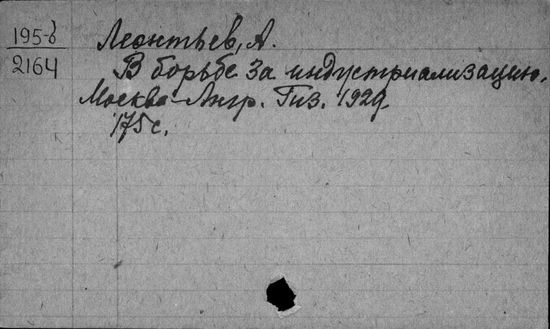 195-б
2164
Леонтьев, А.
В борьбе за индустриализацию.
Москва-Лнгр. Гиз. 1929
175 с.